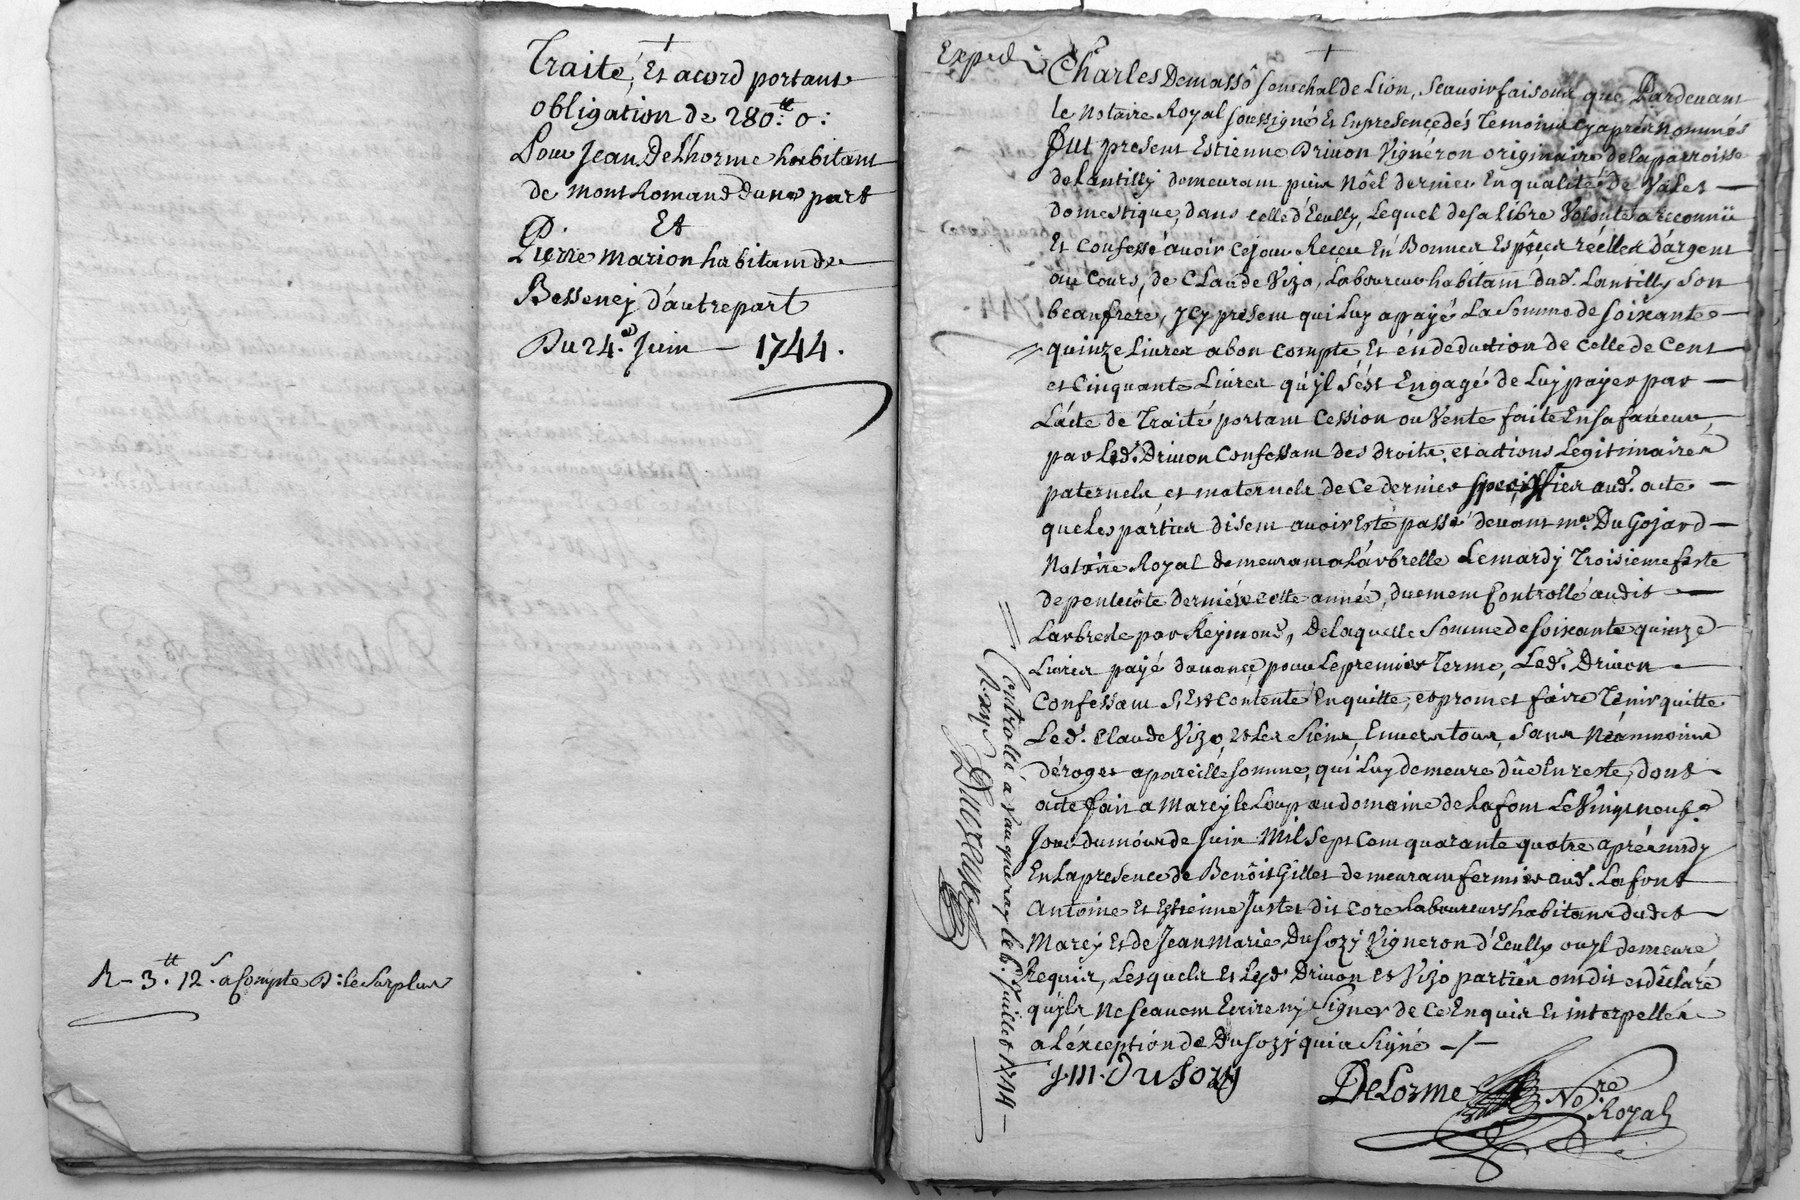 Traité, Et acord portant
obligation de 280.tt 0:
Pour Jean Delhorme habitant
de mont Romand d'une part
Et
Pierre marion habitant de
Bessenej d'autre part
Du 24.e Juin — 1744.
R - 3.tt 12.s a Compte D: le Surplus
Exped
Charles Demasso senechal de Lion, Scavoir faisons que Pardevant
le Notaire Royal Soussigné Et En presence dés Temoins cy aprés nommés
Fut present Estienne Drivon Vignéron originaire de la parroisse
de Lantilly demeurant puis Nôel dernier En qualité de Valet —
domestique, dans celle d'Ecully, Lequel de sa libre Volonté a reconnü
Et Confessé avoir Cejour Reçeu En Bonnes Espêces réélles d'argent
au Cours, de Claude Vizo, Laboureur habitant dud. Lantilly Son
beaufrere, ycy present qui Luy a payé La Somme de soixante —
quinze Livres a bon compte Et en deduction de Celle de Cent
et Cinquante Livres qu'jl s'ést Engagé de Luy payer par —
L'acte de Traité portant Cession ou Vente faite En sa faveur,
par Led. Drivon Confessant des droits, et actions Legitimaires
paternels et maternels de Ce dernier speciffiés aud. acte —
que les parties disent avoir Esté passé devant me. Du Gojard —
Notaire Royal demeurant a L'arbrelle Le mardy Troisieme feste
de pentecôte derniére cette année, duement Controllé audit —
Larbresle par Rejmond, De laquelle Somme de soixante quinze
Livres payé d'avançe pour Le premier Terme, Led. Drivon —
Confessant S'Est Contenté En quitte, et promet faire Tenir quitte
Led. Claude Vizo, Et Les Siens, Envers tous, Sans Néanmoins
déroger a pareille Somme, qui Luy demeure dûe En reste, dont
acte fait a Marcy le Loup au domaine de Lafont Le Vingt neuf.e
Jour du mois de Juin Mil Sept Cent quarante quatre aprés midy
En La presence de Benôit Gilles demeurant fermier aud. Lafont
Antoine Et Estienne Juster dit Core laboureurs habitans dudit —
Marcy Et de Jean Marie Dusozy Vigneron d'Ecully ou jl demeure
Requis, Lesquels et Lesd. Drivon et Vizo parties ont dit et déclaré
qu'jls Ne Scavent Ecrire ny Signer de Ce Enquis Et interpellés
a L'éxception de Dusozy qui a Signé —/—
J. M. Dusozy
DeLorme No.re Royal
Controllé a Vaugneray le 6.e Juillet 1744 —